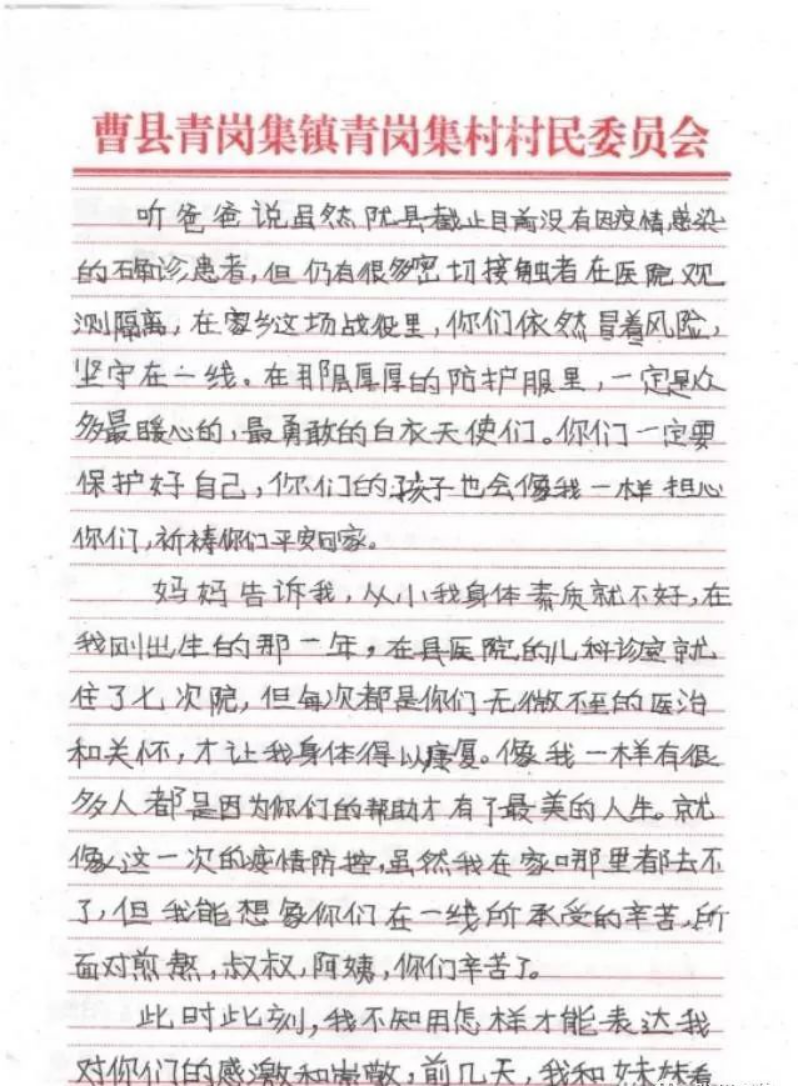 曹县青岗集镇青岗集村村民委员会
听爸爸说虽然我县截止目前没有因疫情感染
的确诊患者，但仍有很多密切接触者在医院观
测隔离，在家乡这场战役里，你们依然冒着风险，
坚守在一线。在那层厚厚的防护服里，一定是众
多最暖心的，最勇敢的白衣天使们。你们一定要
保护好自己，你们的孩子也会像我一样担心
你们，祈祷你们平安回家。
妈妈告诉我，从小我身体素质就不好，在
我刚出生的那一年，在县医院的儿科诊室就
住了七次院，但每次都是你们无微不至的医治
和关怀，才让我身体得以康复。像我一样有很
多人都是因为你们的帮助才有了最美的人生。就
像这一次的疫情防控，虽然我在家哪里都去不
了，但我能想象你们在一线所承受的辛苦，所
面对煎熬，叔叔，阿姨，你们辛苦了。
此时此刻，我不知用怎样才能表达我
对你们的感激和崇敬，前几天，我和妹妹看